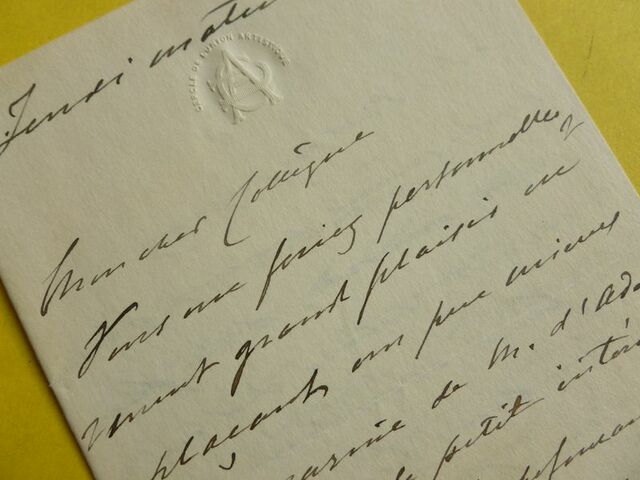 Jeudi matin
CERCLE DE L'UNION ARTISTIQUE
Mon cher Collègue
Vous me feriez personnelle
ment grand plaisir en
plaçant un peu mieux
de M. d'Ad
petit intér